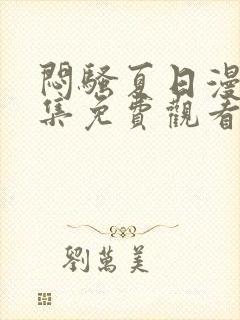 悶騷夏日漫
集免費觀看
劉萬美